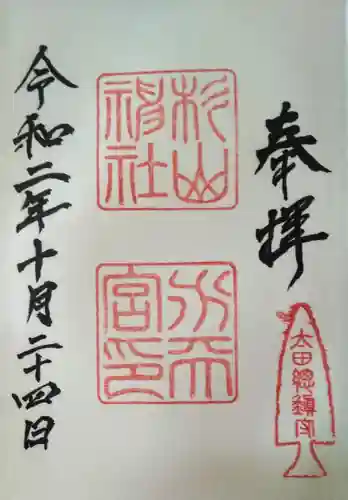 奉拝
太田總鎮守
杉山
神社
水天
宮印
令和二年十月二十四日